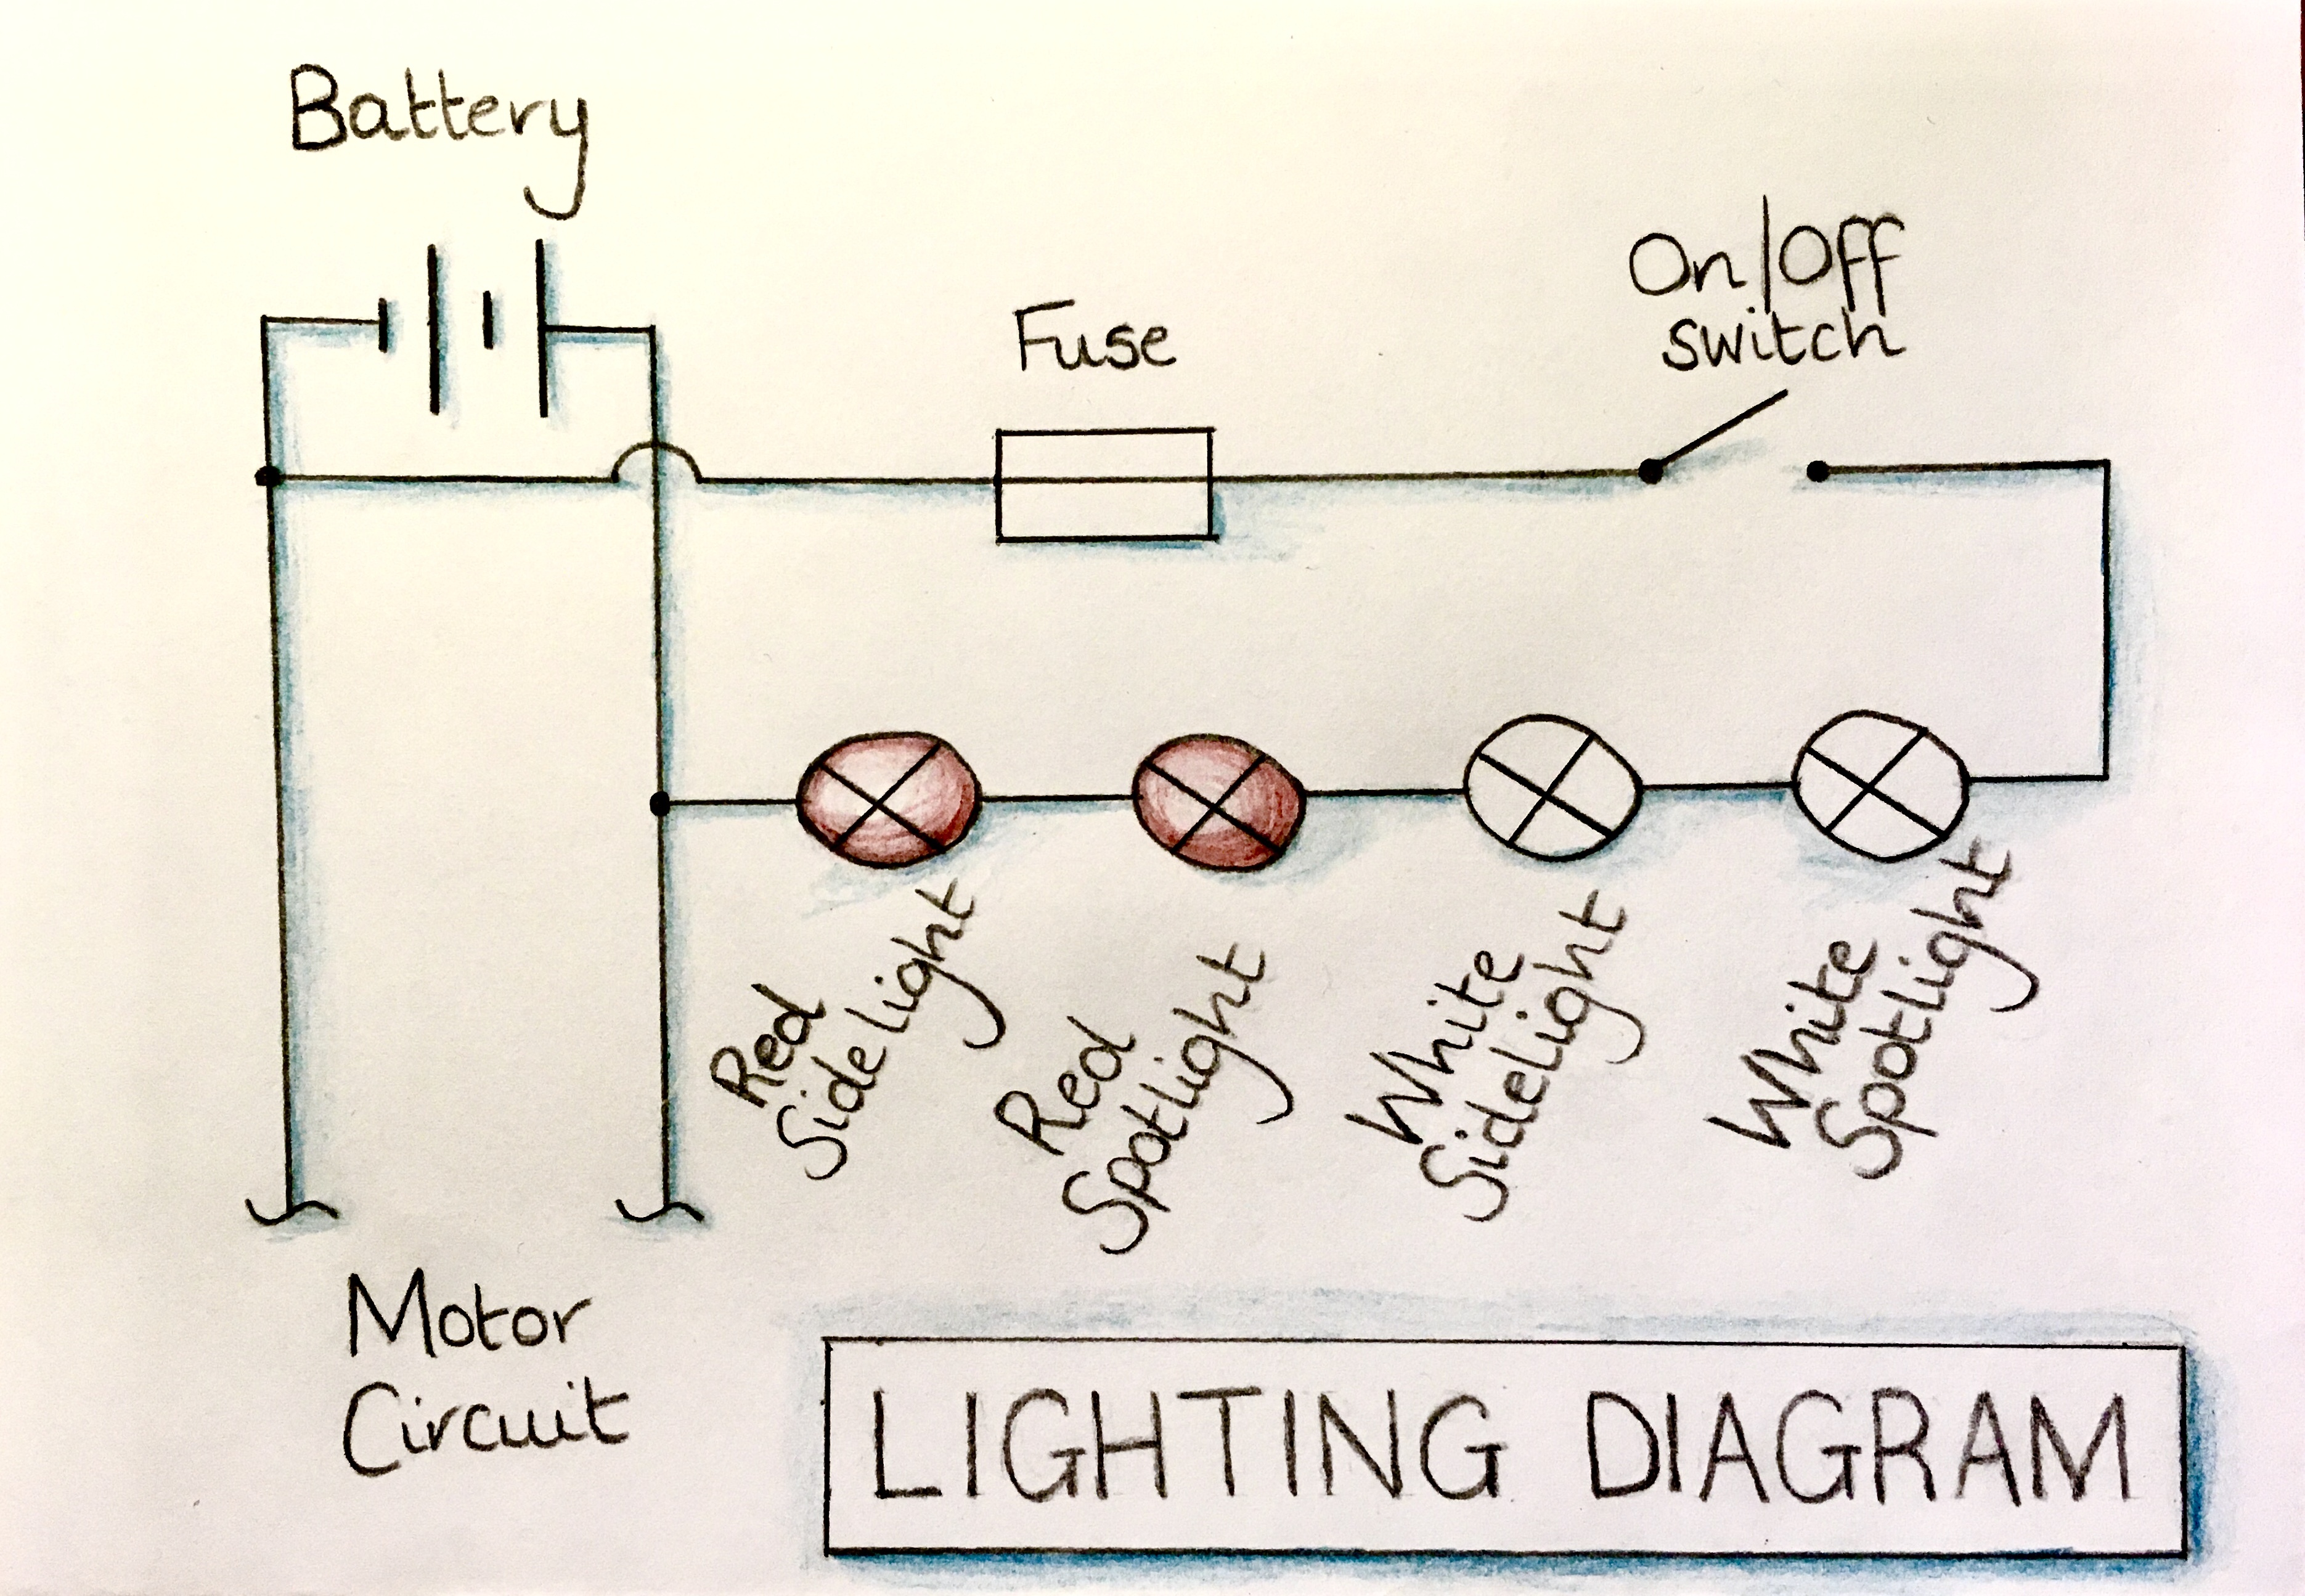 Battery
On/Off
switch
Fuse
Red
Sidelight
Red
Spotlight
White
Sidelight
White
Spotlight
Motor
Circuit
LIGHTING DIAGRAM